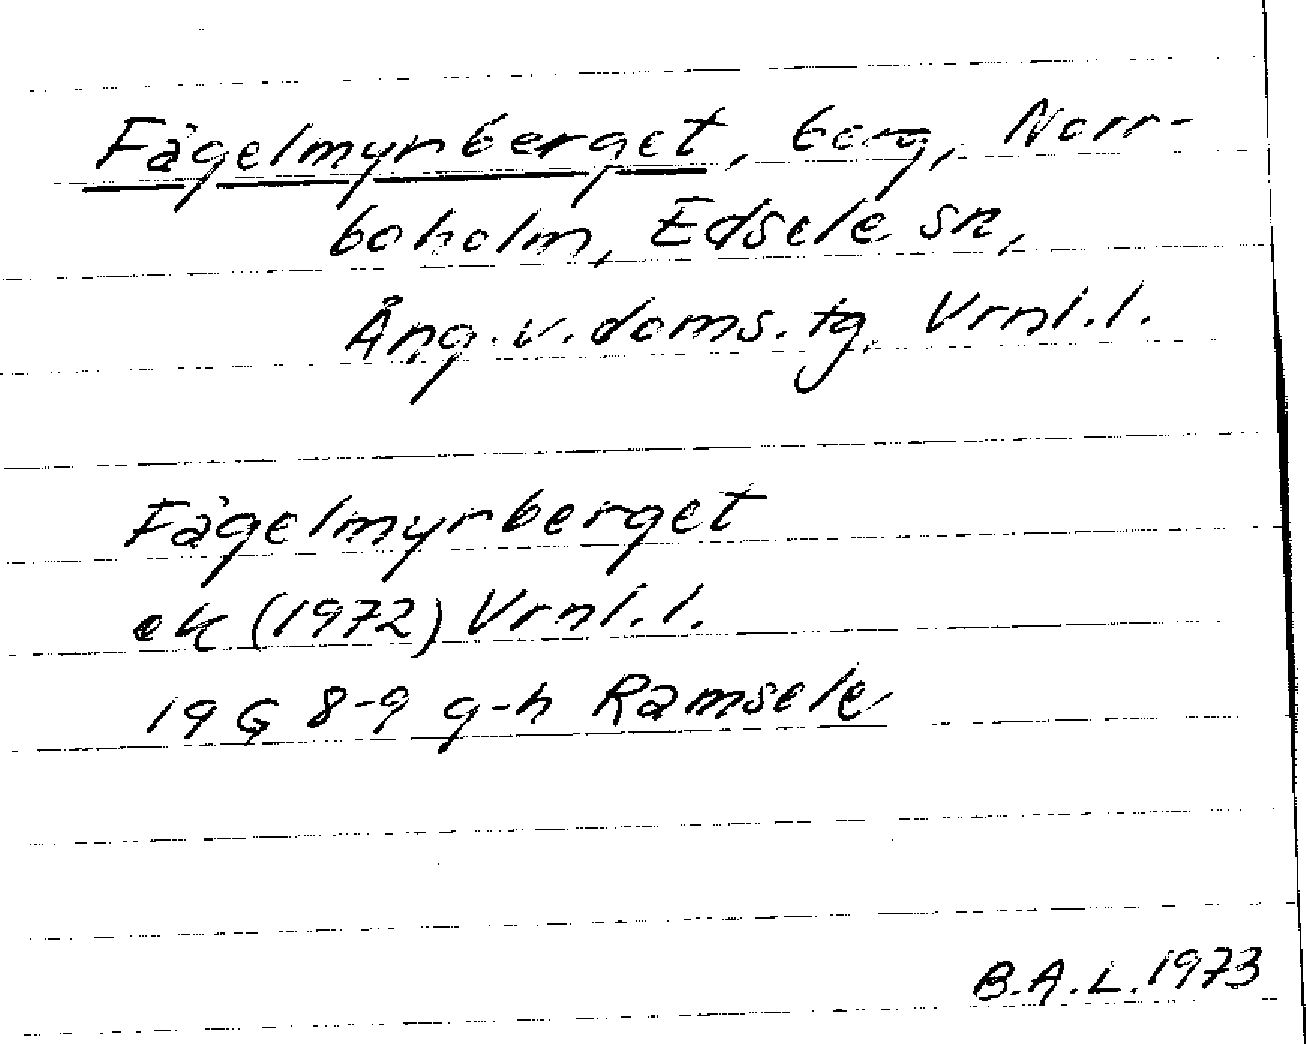 Fågelmyrberget, berg, Norr-
boholm, Edsele sn,
Ång. v. doms. tg, Vrnl. l.
Fågelmyrberget
ek (1972) Vrnl. l.
19 G 8-9 g-h Ramsele
B.A.L. 1973